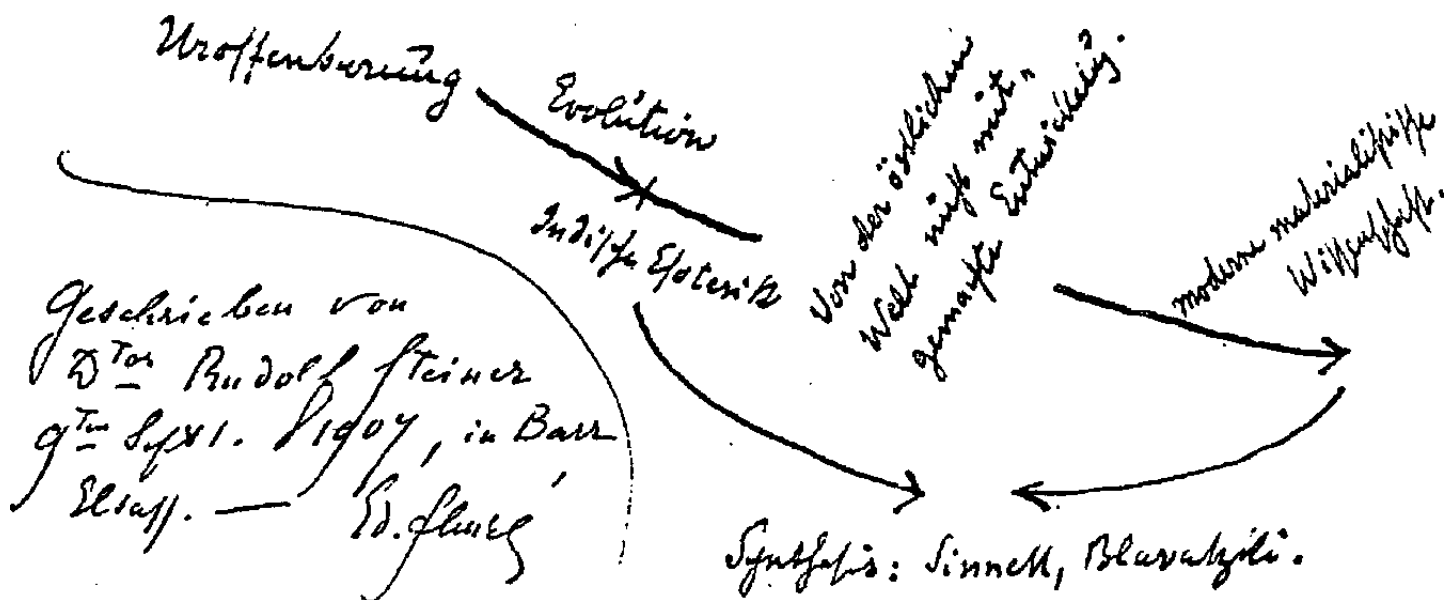 Uroffenbarung
Evolution
Indische Esoterik
Von der östlichen
Welt nicht mit-
gemachte Entwickelung.
moderne materialistische
Wissenschaft.
Geschrieben von
Dtor Rudolf Steiner
9ten Sept. 1907, in Barr
Elsass. — Ed. Schuré
Synthesis: Sinnett, Blavatzki.